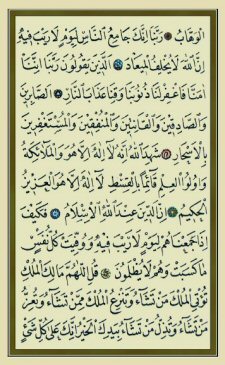 الْوَهَّابُ ۝ رَبَّنَا إِنَّكَ جَامِعُ النَّاسِ لِيَوْمٍ لَا رَيْبَ فِيهِ
إِنَّ اللَّهَ لَا يُخْلِفُ الْمِيعَادَ ۝ الَّذِينَ يَقُولُونَ رَبَّنَا إِنَّنَا
آمَنَّا فَاغْفِرْ لَنَا ذُنُوبَنَا وَقِنَا عَذَابَ النَّارِ ۝ الصَّابِرِينَ
وَالصَّادِقِينَ وَالْقَانِتِينَ وَالْمُنْفِقِينَ وَالْمُسْتَغْفِرِينَ
بِالْأَسْحَارِ ۝ شَهِدَ اللَّهُ أَنَّهُ لَا إِلَهَ إِلَّا هُوَ وَالْمَلَائِكَةُ
وَأُولُوا الْعِلْمِ قَائِمًا بِالْقِسْطِ لَا إِلَهَ إِلَّا هُوَ الْعَزِيزُ
الْحَكِيمُ ۝ إِنَّ الدِّينَ عِنْدَ اللَّهِ الْإِسْلَامُ ۝ فَكَيْفَ
إِذَا جَمَعْنَاهُمْ لِيَوْمٍ لَا رَيْبَ فِيهِ وَوُفِّيَتْ كُلُّ نَفْسٍ
مَا كَسَبَتْ وَهُمْ لَا يُظْلَمُونَ ۝ قُلِ اللَّهُمَّ مَالِكَ الْمُلْكِ
تُؤْتِي الْمُلْكَ مَنْ تَشَاءُ وَتَنْزِعُ الْمُلْكَ مِمَّنْ تَشَاءُ وَتُعِزُّ
مَنْ تَشَاءُ وَتُذِلُّ مَنْ تَشَاءُ بِيَدِكَ الْخَيْرُ إِنَّكَ عَلَى كُلِّ شَيْءٍ